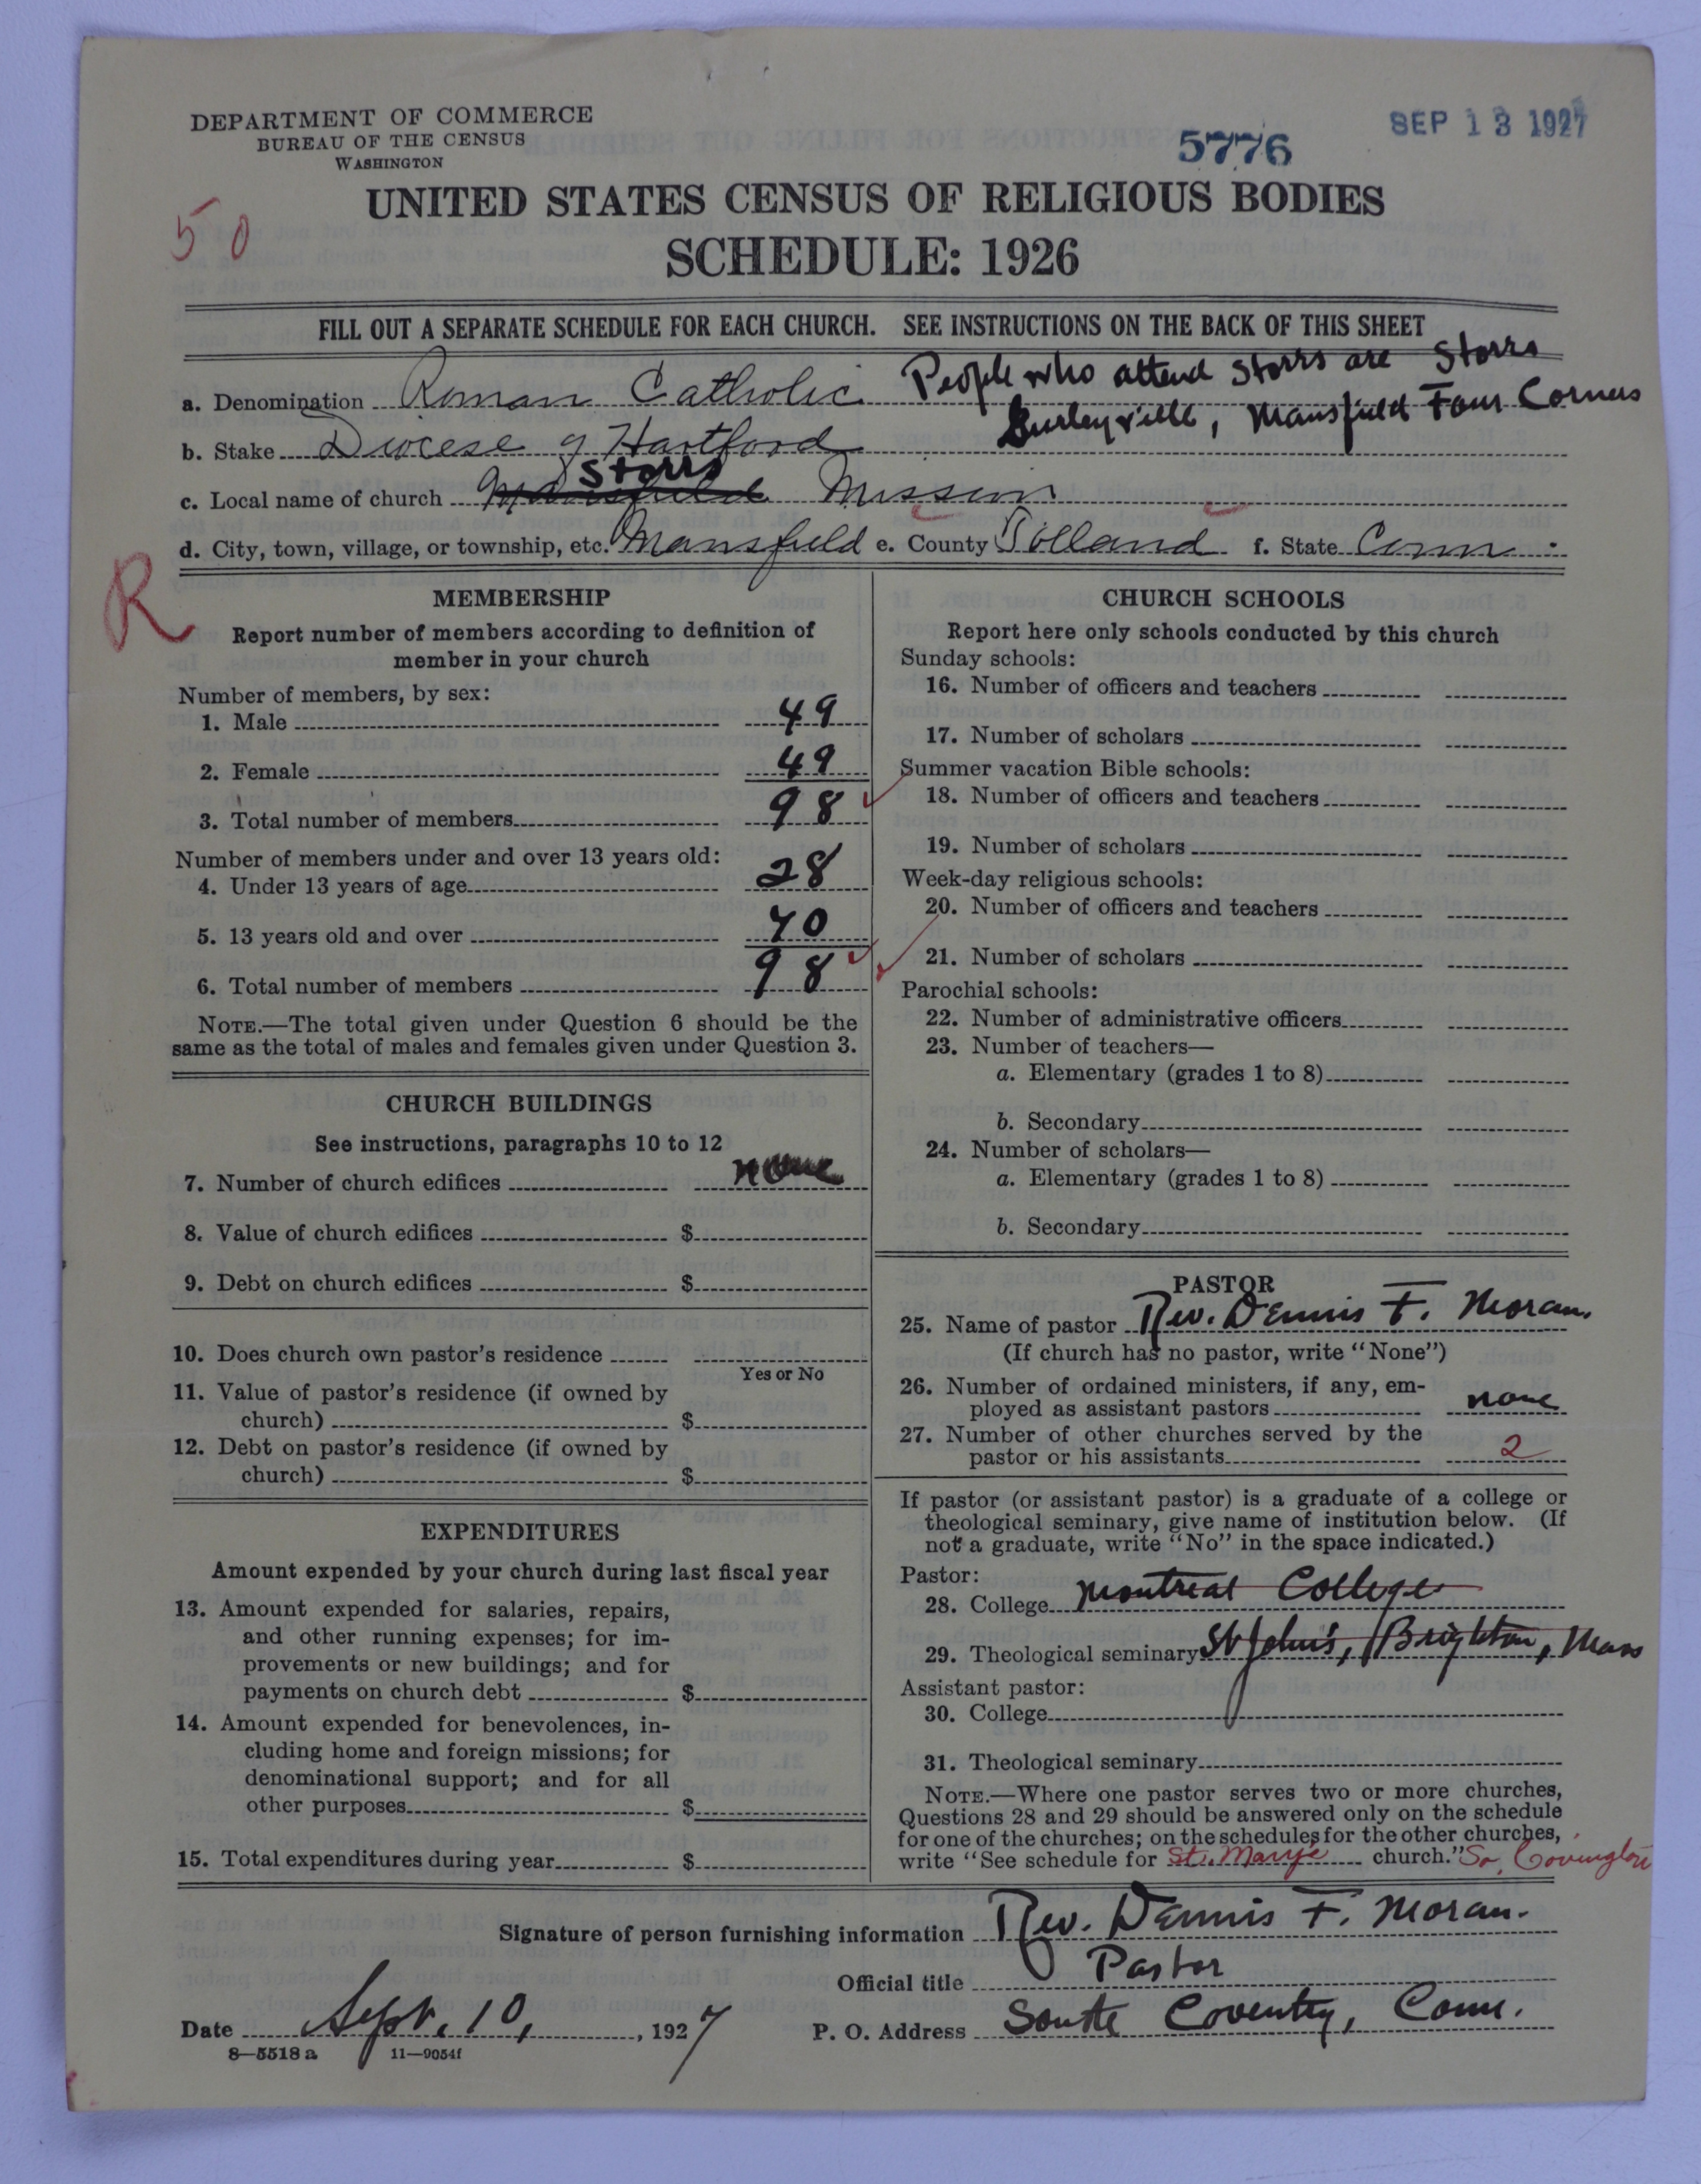 DEPARTMENT OF COMMERCE
BUREAU OF THE CENSUS
WASHINGTON
5776
SEP 13 1927
50
UNITED STATES CENSUS OF RELIGIOUS BODIES
SCHEDULE: 1926
FILL OUT A SEPARATE SCHEDULE FOR EACH CHURCH. SEE INSTRUCTIONS ON THE BACK OF THIS SHEET
a. Denomination Roman Catholic People who attend Storrs are Storrs
Gurleyville, Mansfield Four Corners
b. Stake Diocese of Hartford
c. Local name of church Mansfield Storrs Mission
d. City, town, village, or township, etc. Mansfield e. County Tolland f. State Conn.
R
MEMBERSHIP
Report number of members according to definition of
member in your church
Number of members, by sex:
1. Male 49
2. Female 49
3. Total number of members 98
Number of members under and over 13 years old:
4. Under 13 years of age 28
5. 13 years old and over 70
6. Total number of members 98
NOTE.—The total given under Question 6 should be the
same as the total of males and females given under Question 3.
CHURCH BUILDINGS
See instructions, paragraphs 10 to 12
7. Number of church edifices none
8. Value of church edifices $
9. Debt on church edifices $
10. Does church own pastor's residence
Yes or No
11. Value of pastor's residence (if owned by
church) $
12. Debt on pastor's residence (if owned by
church) $
EXPENDITURES
Amount expended by your church during last fiscal year
13. Amount expended for salaries, repairs,
and other running expenses; for im-
provements or new buildings; and for
payments on church debt $
14. Amount expended for benevolences, in-
cluding home and foreign missions; for
denominational support; and for all
other purposes $
15. Total expenditures during year $
CHURCH SCHOOLS
Report here only schools conducted by this church
Sunday schools:
16. Number of officers and teachers
17. Number of scholars
Summer vacation Bible schools:
18. Number of officers and teachers
19. Number of scholars
Week-day religious schools:
20. Number of officers and teachers
21. Number of scholars
Parochial schools:
22. Number of administrative officers
23. Number of teachers—
a. Elementary (grades 1 to 8)
b. Secondary
24. Number of scholars—
a. Elementary (grades 1 to 8)
b. Secondary
PASTOR
25. Name of pastor Rev. Dennis F. Moran
(If church has no pastor, write "None")
26. Number of ordained ministers, if any, em-
ployed as assistant pastors none
27. Number of other churches served by the
pastor or his assistants 2
If pastor (or assistant pastor) is a graduate of a college or
theological seminary, give name of institution below. (If
not a graduate, write "No" in the space indicated.)
Pastor:
28. College Montreal College
29. Theological seminary St John's, Brighton, Mass
Assistant pastor:
30. College
31. Theological seminary
NOTE.—Where one pastor serves two or more churches,
Questions 28 and 29 should be answered only on the schedule
for one of the churches; on the schedules for the other churches,
write "See schedule for St. Mary's church." So. Covington
Signature of person furnishing information Rev. Dennis F. Moran.
Official title Pastor
Date Sept. 10, 1927 P. O. Address South Coventry, Conn.
8—5518 a 11—9054f